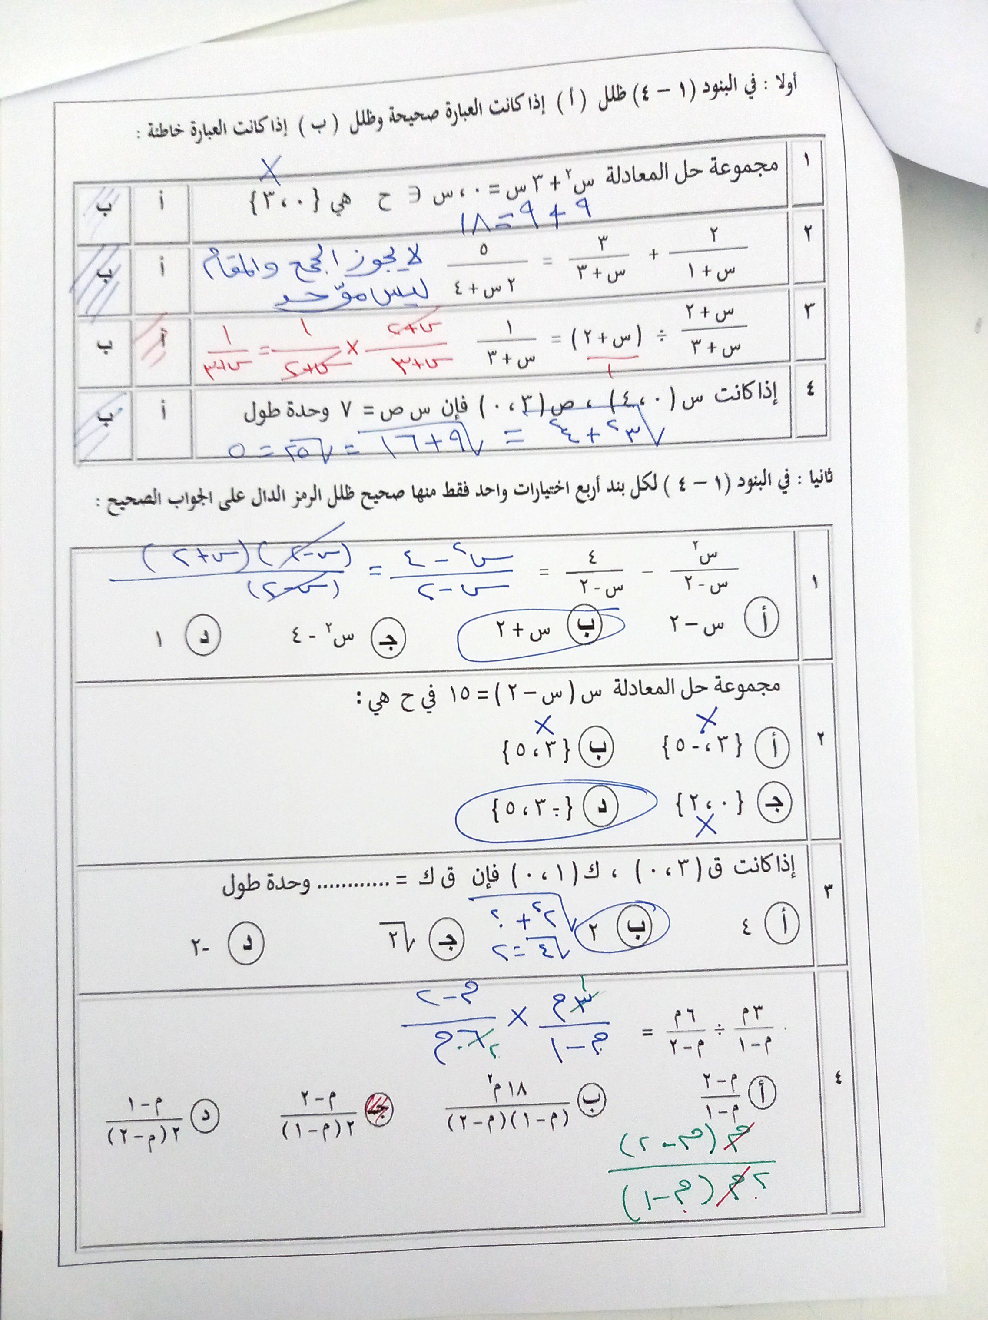 أولا : في البنود (١ – ٤) ظلل (أ) إذا كانت العبارة صحيحة وظلل (ب) إذا كانت العبارة خاطئة :
١ مجموعة حل المعادلة س٢ + ٣ س = ٠ ، س ∈ ح هي {٠ ، ٣} أ ب
٩ + ٩ = ١٨
٢ ٢/(س + ١) + ٣/(س + ٣) = ٥/(٢ س + ٤) أ ب
لا يجوز الجمع والمقام
ليس موّحد
٣ (س + ٢)/(س + ٣) ÷ (س + ٢) = ١/(س + ٣) أ ب
(س+٢)/(س+٣) × ١/(س+٢) = ١/(س+٣)
١
٤ إذا كانت س (٠ ، ٤) ، ص (٣ ، ٠) فإن س ص = ٧ وحدة طول أ ب
√(٣٢ + ٤٢) = √(٩ + ١٦) = √٢٥ = ٥
ثانيا : في البنود (١ – ٤) لكل بند أربع اختيارات واحد فقط منها صحيح ظلل الرمز الدال على الجواب الصحيح :
١ س٢/(س - ٢) - ٤/(س - ٢) =
(س٢ - ٤)/(س - ٢) = (س-٢)(س+٢)/(س-٢)
أ س – ٢ ب س + ٢ جـ س٢ - ٤ د ١
٢ مجموعة حل المعادلة س (س – ٢) = ١٥ في ح هي :
أ {٣ ، -٥} ب {٣ ، ٥}
جـ {٠ ، ٢} د {-٣ ، ٥}
٣ إذا كانت ق (٣ ، ٠) ، ك (١ ، ٠) فإن ق ك = ............ وحدة طول
أ ٤ ب ٢ جـ √٢ د -٢
√٤ = ٢
٤ ٣م/(م – ١) ÷ ٦م/(م – ٢) =
٣م/(م - ١) × (م - ٢)/٦م
أ (م – ٢)/(م – ١) ب ١٨ م٢/(م – ١)(م – ٢) جـ (م – ٢)/٢(م – ١) د (م – ١)/٢(م – ٢)
م(م - ٢)/٢م(م - ١)